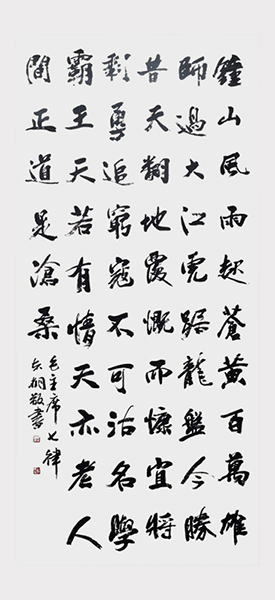 鐘山風雨起蒼黃百萬雄
師過大江虎踞龍盤今勝
昔天翻地覆慨而慷宜將
剩勇追窮寇不可沽名學
霸王天若有情天亦老人
間正道是滄桑
毛主席七律
敬書